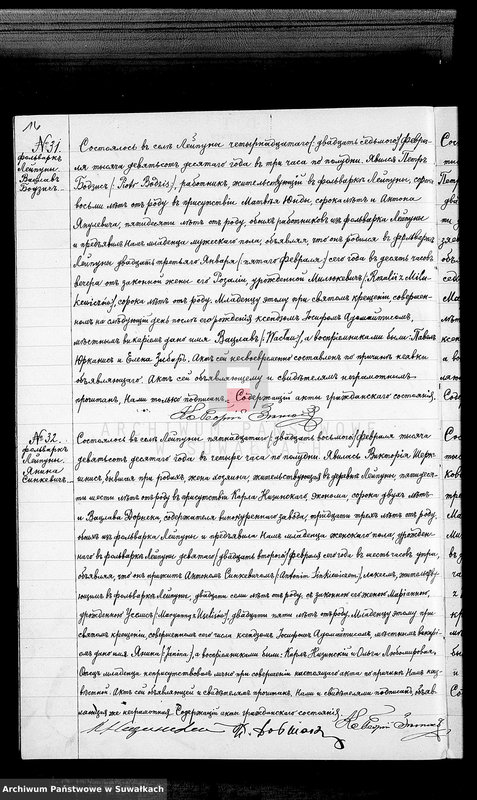 16
№ 31.
фольваркъ
Лейпуны
Вацлавъ
Бодзисъ.
Состоялось въ селѣ Лейпуны четырнадцатаго /: двадцать седьмого :/ Февра-
ля тысяча девятьсотъ десятаго года въ три часа по полудни. Явился Петръ
Бодзисъ /: Piotr Bodzis :/, работникъ, жительствующій въ фольваркѣ Лейпуны, сорока
восьми лѣтъ отъ роду, въ присутствіи Матвѣя сорока лѣтъ и Антона
пятидесяти лѣтъ отъ роду, обоихъ работниковъ изъ фольварка Лейпуны
и предъявилъ Намъ младенца мужескаго пола, объявляя, что онъ родился въ фольваркѣ
Лейпуны двадцать третьяго Января /: пятаго Февраля :/ сего года въ десять часовъ
вечера отъ законной жены его Розаліи, урожденной Милюкевичъ /: Rozalii z Milu-
kewiczów :/, сорока лѣтъ отъ роду. Младенцу этому при святомъ крещеніи совершен-
номъ на слѣдующій день послѣ его рожденія ксендзомъ Іосифомъ Адомайтисомъ,
мѣстнымъ викаріемъ дано имя Вацлавъ /: Wacław :/, а воспріемниками были: Павелъ
Юрканисъ и Елена Актъ сей несвоевременно составленъ по причинѣ неявки
объявляющаго. Актъ сей объявляющему и свидѣтелямъ неграмотнымъ
прочитанъ, Нами только подписанъ. Содержащій акты гражданскаго состоянія.
№ 32.
фольваркъ
Лейпуны.
Янина
Синкевичъ.
Состоялось въ селѣ Лейпуны пятнадцатаго /: двадцать восьмого :/ Февраля тысяча
девятьсотъ десятаго года въ четыре часа по полудни. Явилась Викторія
бывшая при родахъ, жена хозяина, жительствующая въ деревнѣ Лейпуны, пятидеся-
ти шести лѣтъ отъ роду, въ присутствіи Карла эконома, сорока двухъ лѣтъ
и Вацлава содержателя винокуреннаго завода, тридцати трехъ лѣтъ отъ роду,
обоихъ изъ фольварка Лейпуны и предъявила Намъ младенца женскаго пола, урожден-
наго въ фольваркѣ Лейпуны девятаго /: двадцать второго :/ Февраля сего года въ шесть часовъ утра,
объявляя, что онъ прижитъ Антономъ Синкевичемъ /: Antonim Sinkiewiczem :/, лакеемъ, жительству-
ющимъ въ фольваркѣ Лейпуны, двадцати семи лѣтъ отъ роду, съ законною его женою Маріанною,
урожденною двадцати пяти лѣтъ отъ роду. Младенцу этому при
святомъ крещеніи, совершенномъ сего числа ксендзомъ Іосифомъ Адомайтисомъ, мѣстнымъ викарі-
емъ дано имя Янина /: Janina :/, а воспріемниками были: Карлъ и Ольга
Отецъ младенца неприсутствовалъ лично при совершеніи настоящаго акта по причинѣ Намъ неиз-
вѣстной. Актъ сей объявляющей и свидѣтелямъ прочитанъ, Нами и свидѣтелями подписанъ, объяв-
ляющая же неграмотная. Содержащій акты гражданскаго состоянія
Archiwum Państwowe w Suwałkach